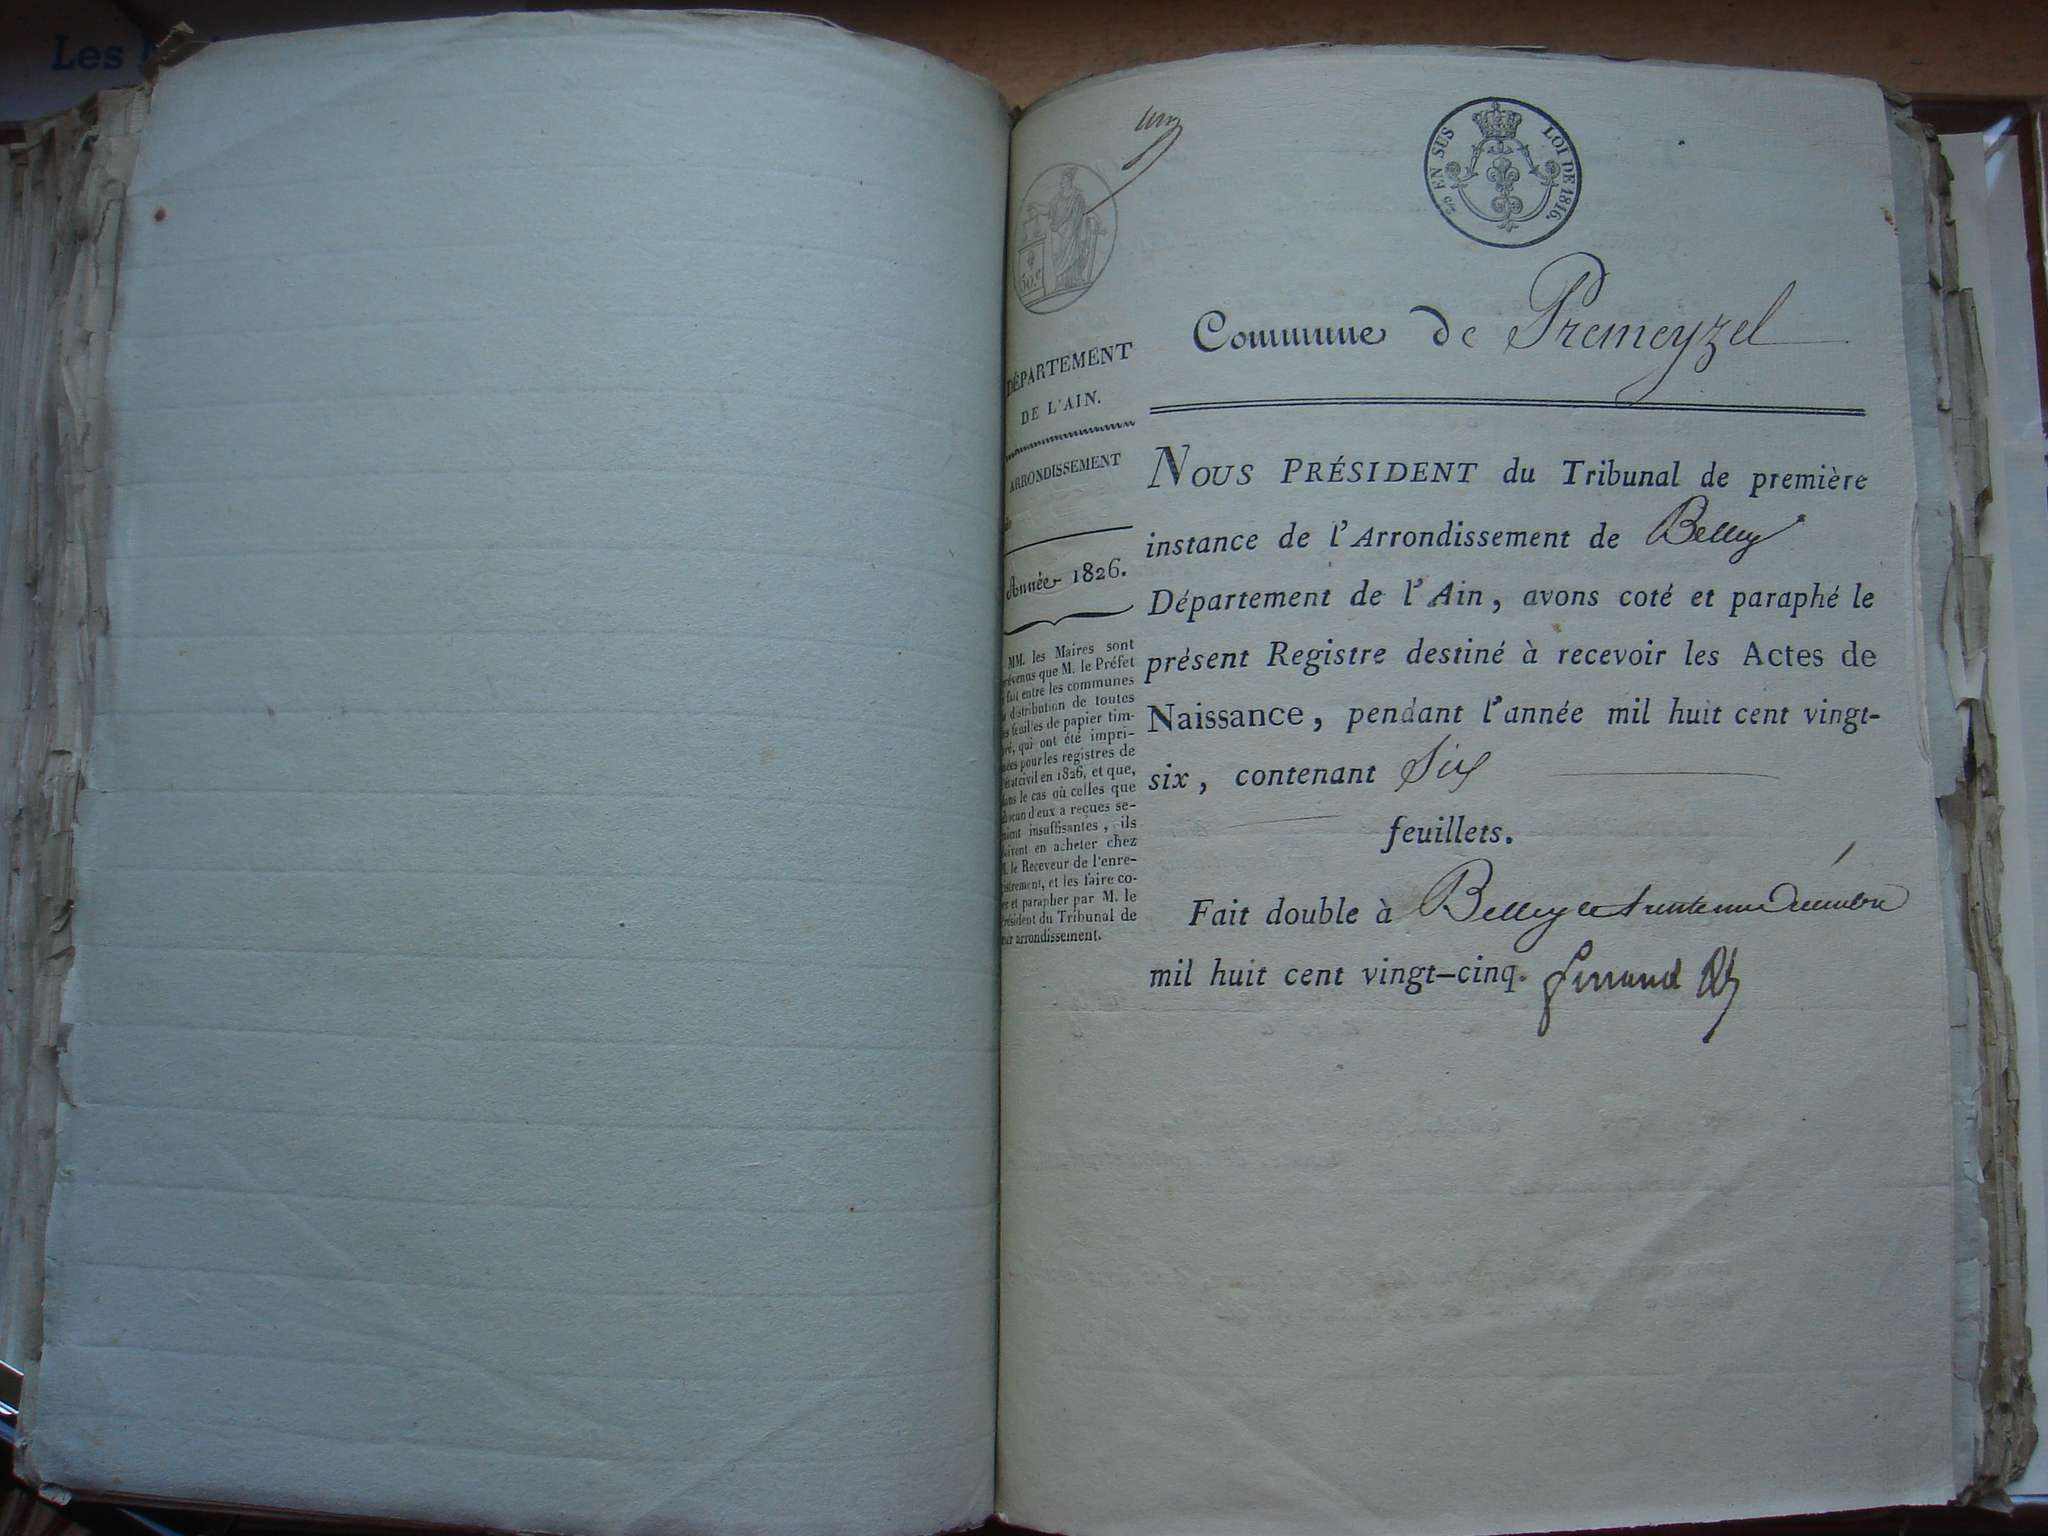 Les
un
EN SUS LOI DE 1816.
50 c.
Commune de Premeyzel
DÉPARTEMENT
DE L'AIN.
ARRONDISSEMENT
Année 1826.
MM. les Maires sont
prévenus que M. le Préfet
fait entre les communes
distribution de toutes
feuilles de papier tim-
bré, qui ont été impri-
mées pour les registres de
l'état civil en 1826, et que,
dans le cas où celles que
chacun d'eux a reçues se-
raient insuffisantes, ils
doivent en acheter chez
M. le Receveur de l'enre-
gistrement, et les faire co-
ter et parapher par M. le
Président du Tribunal de
leur arrondissement.
NOUS PRÉSIDENT du Tribunal de première
instance de l'Arrondissement de Belley
Département de l'Ain, avons coté et paraphé le
présent Registre destiné à recevoir les Actes de
Naissance, pendant l'année mil huit cent vingt-
six, contenant Six
feuillets.
Fait double à Belley le trente un Décembre
mil huit cent vingt-cinq. Ferrand